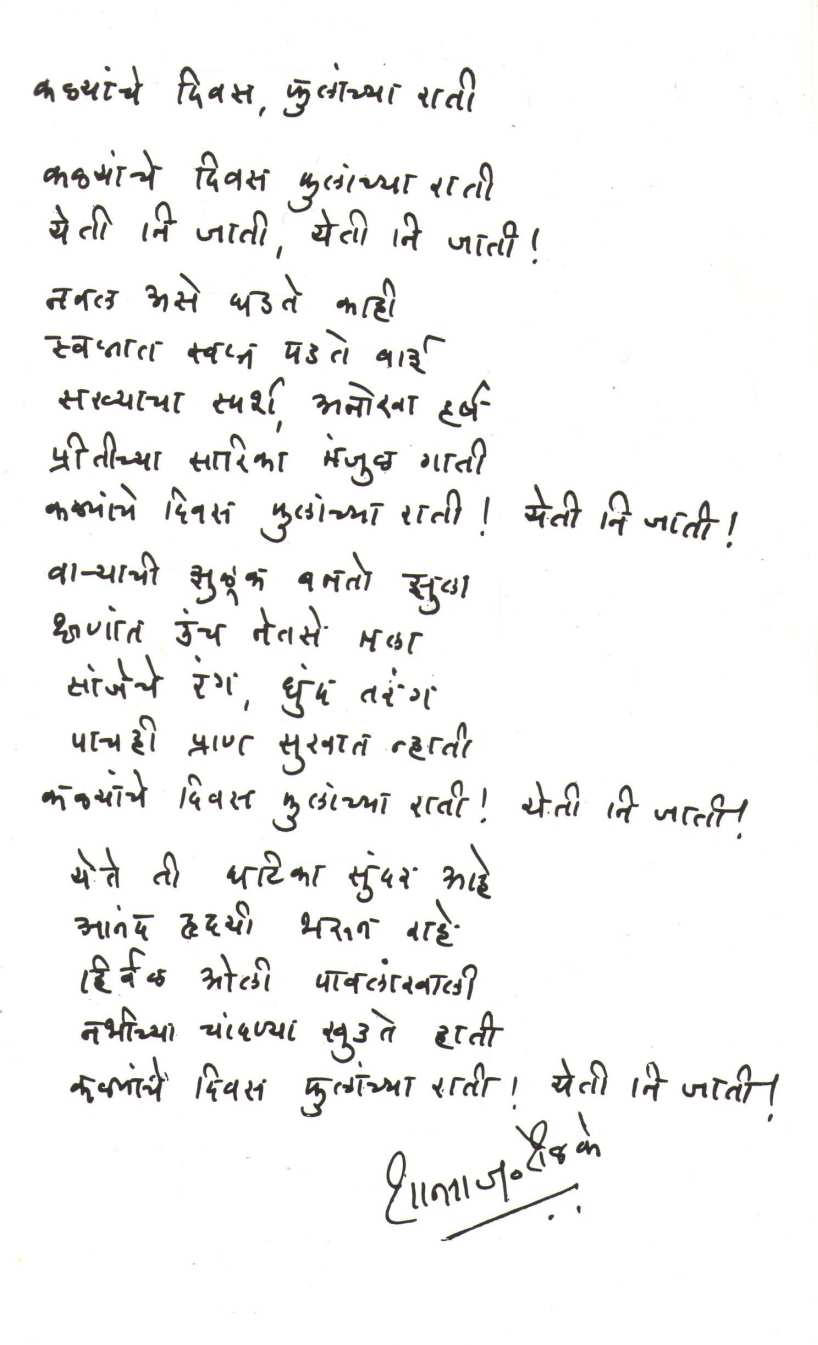 कळ्यांचे दिवस, फुलांच्या राती
कळ्यांचे दिवस फुलांच्या राती
येती नि जाती, येती नि जाती!
नवल असे घडते काही
स्वप्नात स्वप्न पडते बाई
सख्याचा स्पर्श, अनोखा हर्ष
प्रीतीच्या सारिका मंजुळ गाती
कळ्यांचे दिवस फुलांच्या राती! येती नि जाती!
वाऱ्याची झुळूक बनतो झुला
क्षणांत उंच नेतसे मला
सांजेचे रंग, धुंद तरंग
पाचही प्राण सुखात न्हाती
कळ्यांचे दिवस फुलांच्या राती! येती नि जाती!
येते ती घटिका सुंदर आहे
आनंद हृदयी भरून राहे
हिर्वळ ओली पावलांखाली
नभीच्या चांदण्या खुडते हाती
कळ्यांचे दिवस फुलांच्या राती! येती नि जाती!
शान्ता ज. शेळके